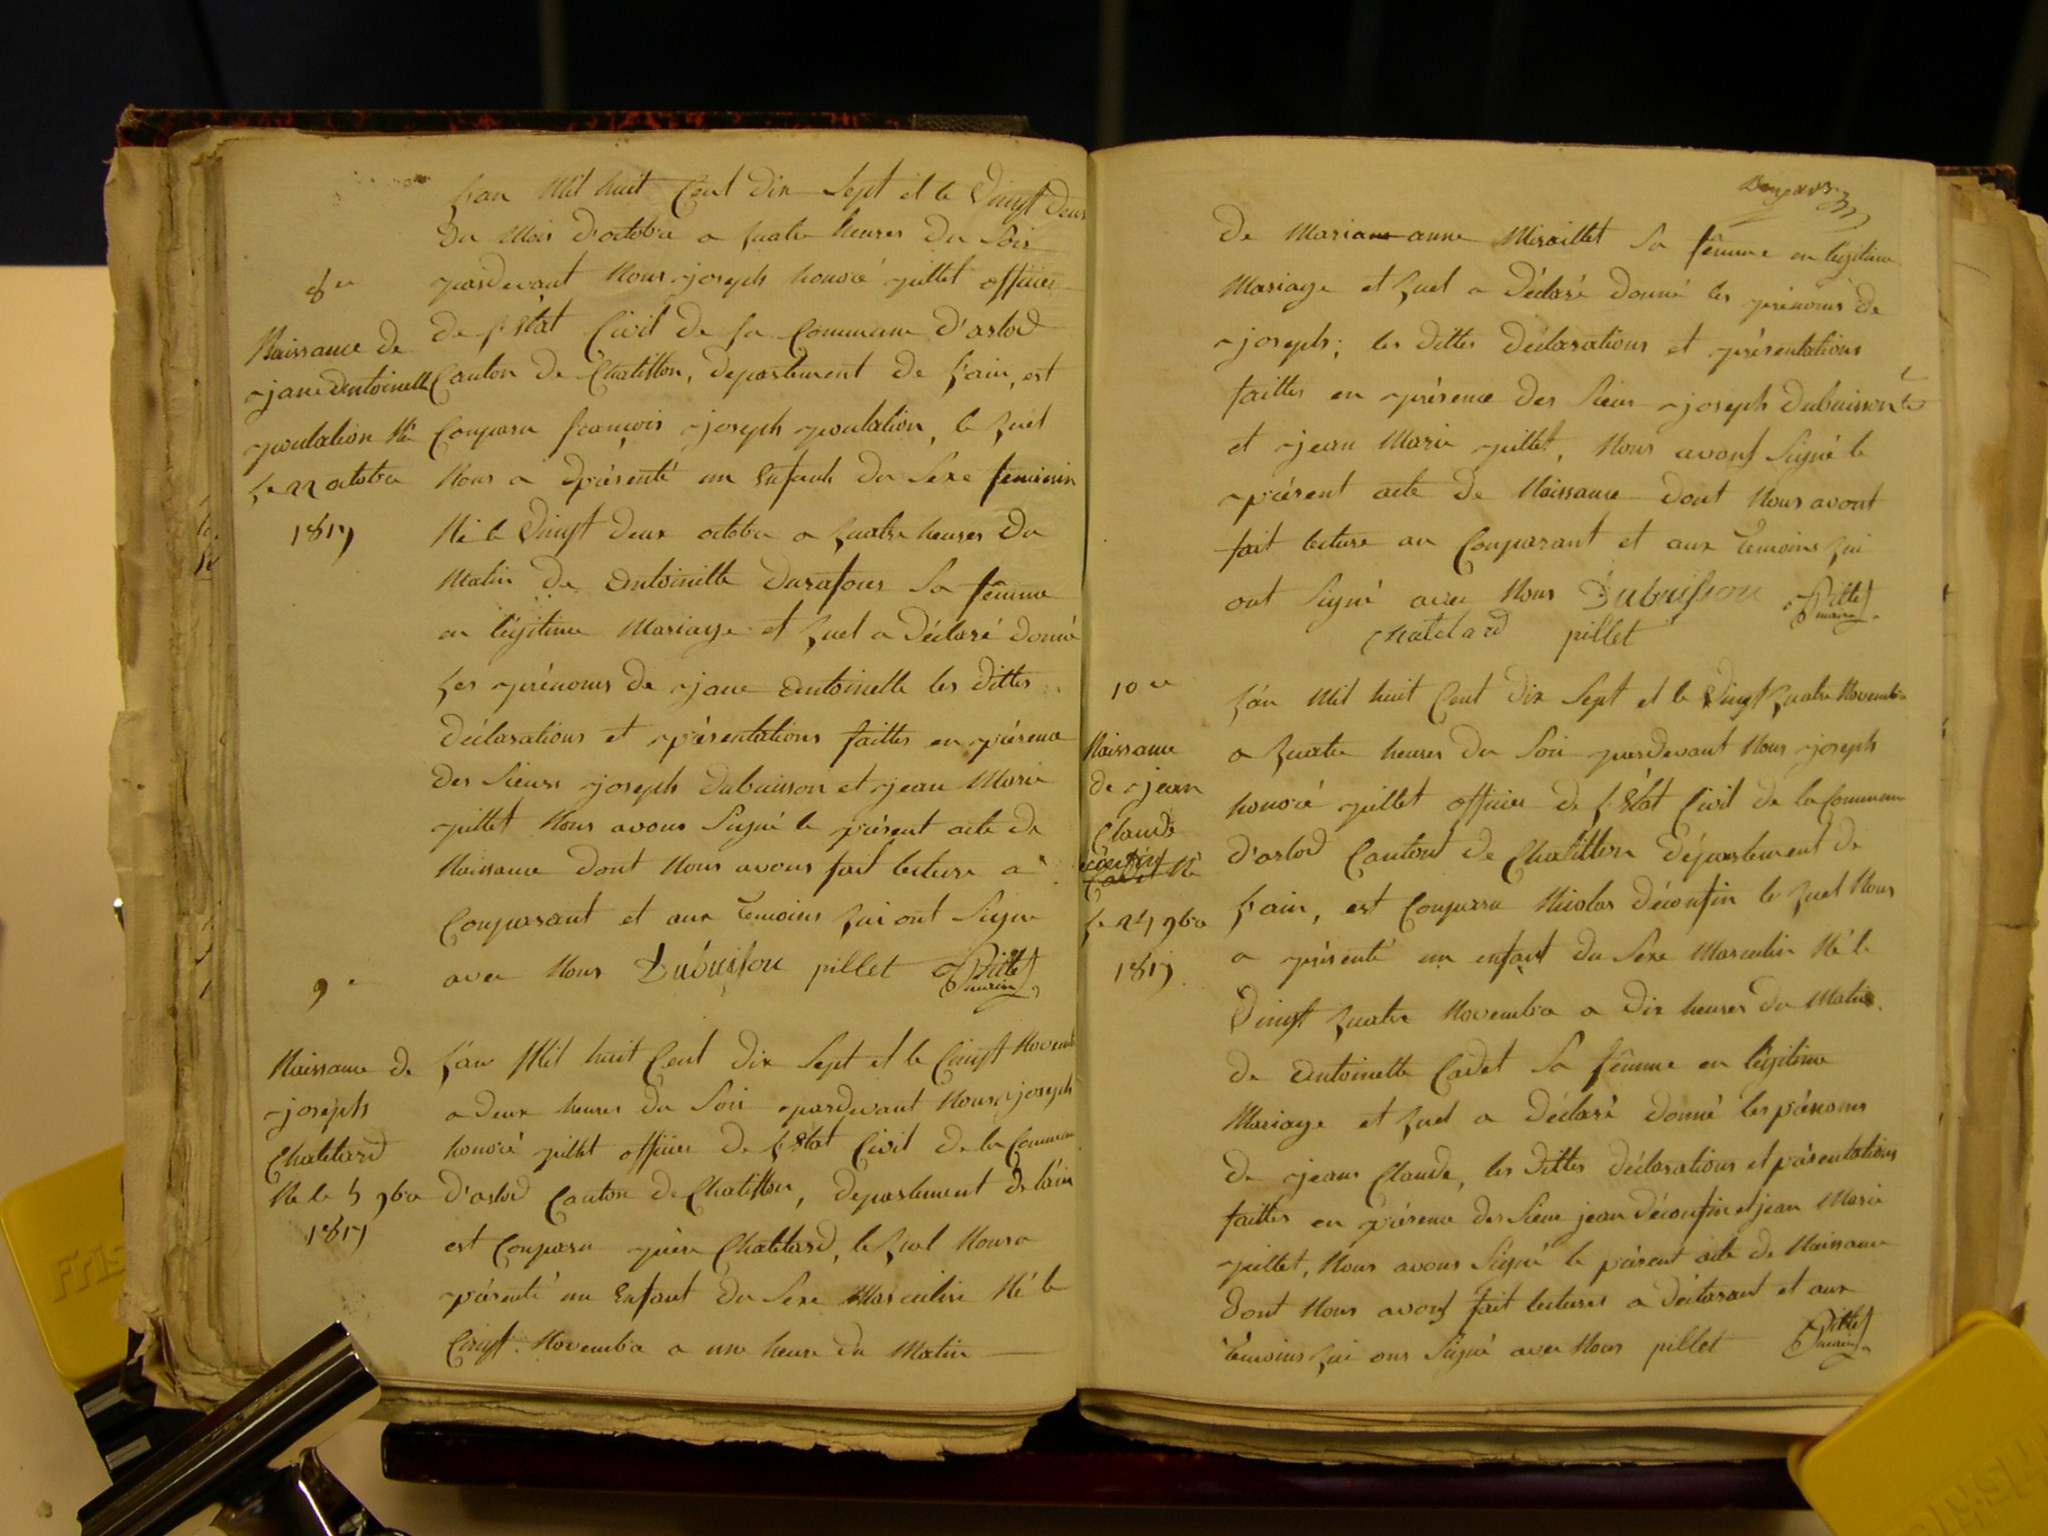 L'an Mil huit Cent dix Sept et le Vingt deux
du Mois d'octobre a quatre heures du Soir
8e
pardevant Nous joseph honoré pillet officier
de L'Etat Civil de La Commune d'arlod
Canton de Chatillon, departement de L'ain, est
Comparu françois joseph poulation, le quel
Nous a présenté un Enfant du Sexe feminin
Né le Vingt deux octobre a quatre heures du
Matin de antoinette durafour Sa femme
en légitime Mariage et quel a Déclaré donné
Les prénoms de jane antoinette les dittes
déclarations et présentations faittes en présence
des Sieurs joseph dubuisson et jean Marie
pillet Nous avons Signé le présent acte de
Naissance dont Nous avons fait lecture a
Comparant et aux temoins qui ont Signé
avec Nous Dubuisson pillet Pillet
maire
Naissance de
jane antoinette
poulation Né
Le 22 octobre
1817
9e
Naissance de
joseph
Chatelard
Né le 5 9bre
1817
L'an Mil huit Cent dix Sept et le Cinqt Novemb
a deux heures du Soir pardevant Nous joseph
honoré pillet officier de L'Etat Civil de la Commune
d'arlod Canton de Chatillon, departement de L'ain
est Comparu pierre Chatelard, le quel Nous a
présenté un Enfant du Sexe Masculin Né le
Cinqt Novembre a une heure du Matin
de Mariane anne Miraillet Sa femme en légitime
Mariage et quel a Déclaré donné les prénoms de
joseph; les dittes déclarations et présentations
faittes en présence des Sieur joseph dubuisson
et jean Marie pillet, Nous avons Signé le
présent acte de Naissance dont Nous avont
fait lecture au Comparant et aux temoins qui
ont Signé avec Nous Dubuisson Pillet
maire
Chatelard pillet
10e
Naissance
de jean
Claude
décontin
Cadet Né
Le 24 9bre
1817
L'an Mil huit Cent dix Sept et le Vingt quatre Novembre
a quatre heures du Soir pardevant Nous joseph
honoré pillet officier de L'Etat Civil de la Commune
d'arlod Canton de Chatillon département de
L'ain, est Comparu Nicolas décontin le quel Nous
a présenté un enfant du Sexe Masculin Né le
Vingt quatre Novembre a dix heures du Matin
de antoinette Cadet Sa femme en légitime
Mariage et quel a déclaré donné les prénoms
de jean Claude, les dittes déclarations et présentations
faittes en présence des Sieur jean décontin et jean Marie
pillet, Nous avons Signé le présent acte de Naissance
dont Nous avons fait lectures a déclarant et aux
témoins qui ons Signé avec Nous pillet Pillet
maire